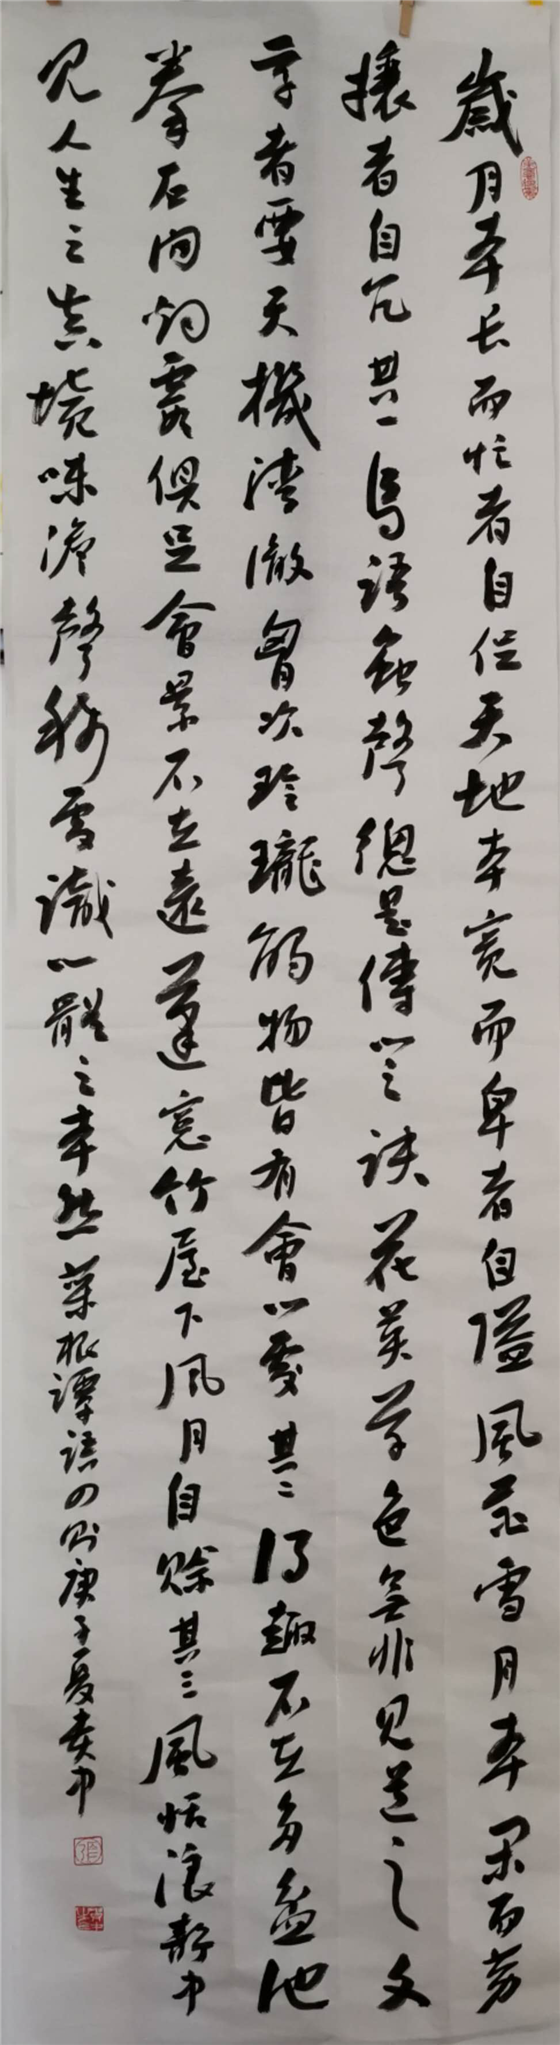 歲月本长而忙者自促天地本寬而卑者自隘風花雪月本閑而劳
攘者自冗其一鳥語蟲聲總是傳心之訣花英草色無非見道之文
学者要天機清徹胷次玲瓏觸物皆有會心處其二得趣不在多盆池
拳石间烟霞俱足會景不在遠蓬窓竹屋下风月自赊其三風恬浪静中
见人生之真境味淡聲稀處識心體之本然菜根譚語四则庚子夏